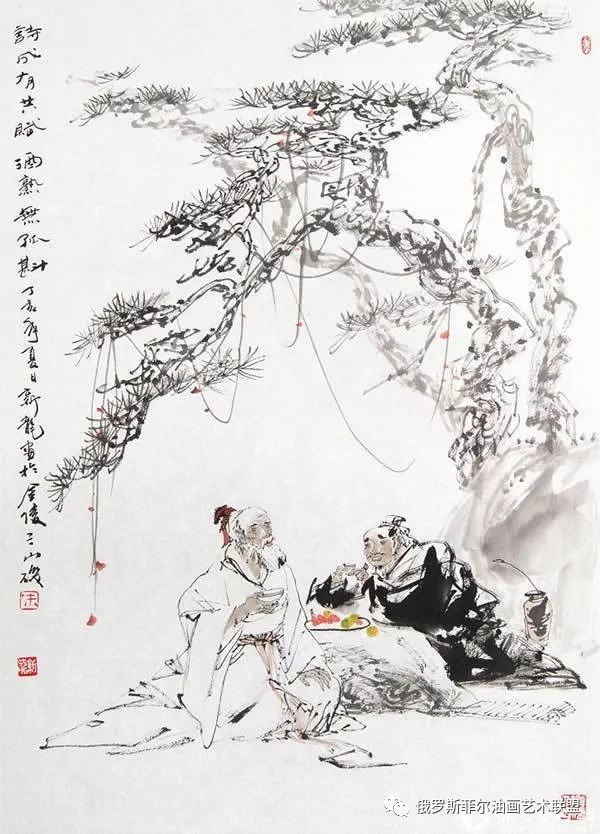 詩成有共賦 酒熟無孤斟 丁亥年夏日新龍畫於金陵三山磯
朱
俄罗斯菲尔油画艺术联盟